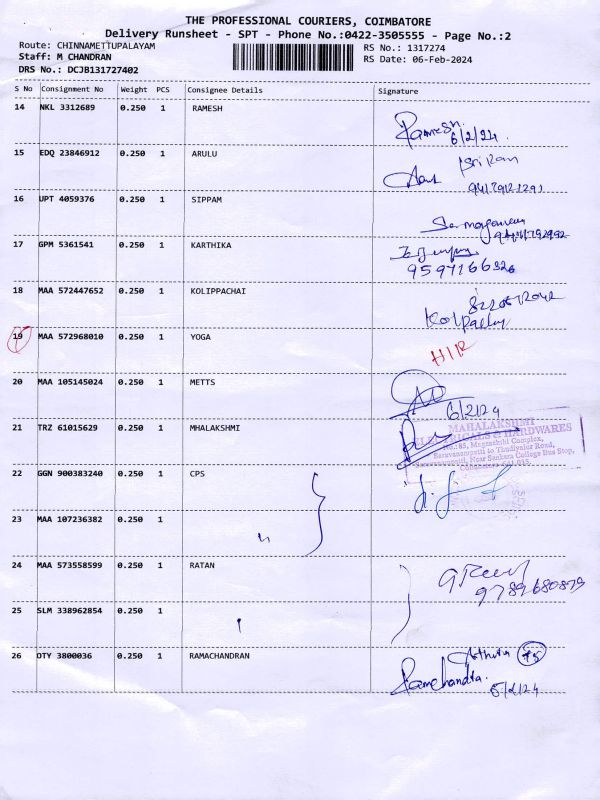 THE PROFESSIONAL COURIERS, COIMBATORE
Delivery Runsheet - SPT - Phone No.:0422-3505555 - Page No.:2
Route: CHINNAMETTUPALAYAM
RS No.: 1317274
Staff: M CHANDRAN
RS Date: 06-Feb-2024
DRS No.: DCJB131727402
S No Consignment No Weight PCS Consignee Details Signature
14 NKL 3312689 0.250 1 RAMESH
Ramesh.
6/2/24.
15 EDQ 23846912 0.250 1 ARULU
16 UPT 4059376 0.250 1 SIPPAM
17 GPM 5361541 0.250 1 KARTHIKA
9597166326
18 MAA 572447652 0.250 1 KOLIPPACHAI
19 MAA 572968010 0.250 1 YOGA
20 MAA 105145024 0.250 1 METTS
6/2/24
21 TRZ 61015629 0.250 1 MHALAKSHMI
MAHALAKSHMI
ELECTRICALS & HARDWARES
Saravanampatti to Thudiyalur Road,
Saravanampatti, Near Sankara College Bus Stop,
22 GGN 900383240 0.250 1 CPS
23 MAA 107236382 0.250 1
24 MAA 573558599 0.250 1 RATAN
9789680879
25 SLM 338962854 0.250 1
26 DTY 3800036 0.250 1 RAMACHANDRAN
Ramchandra.